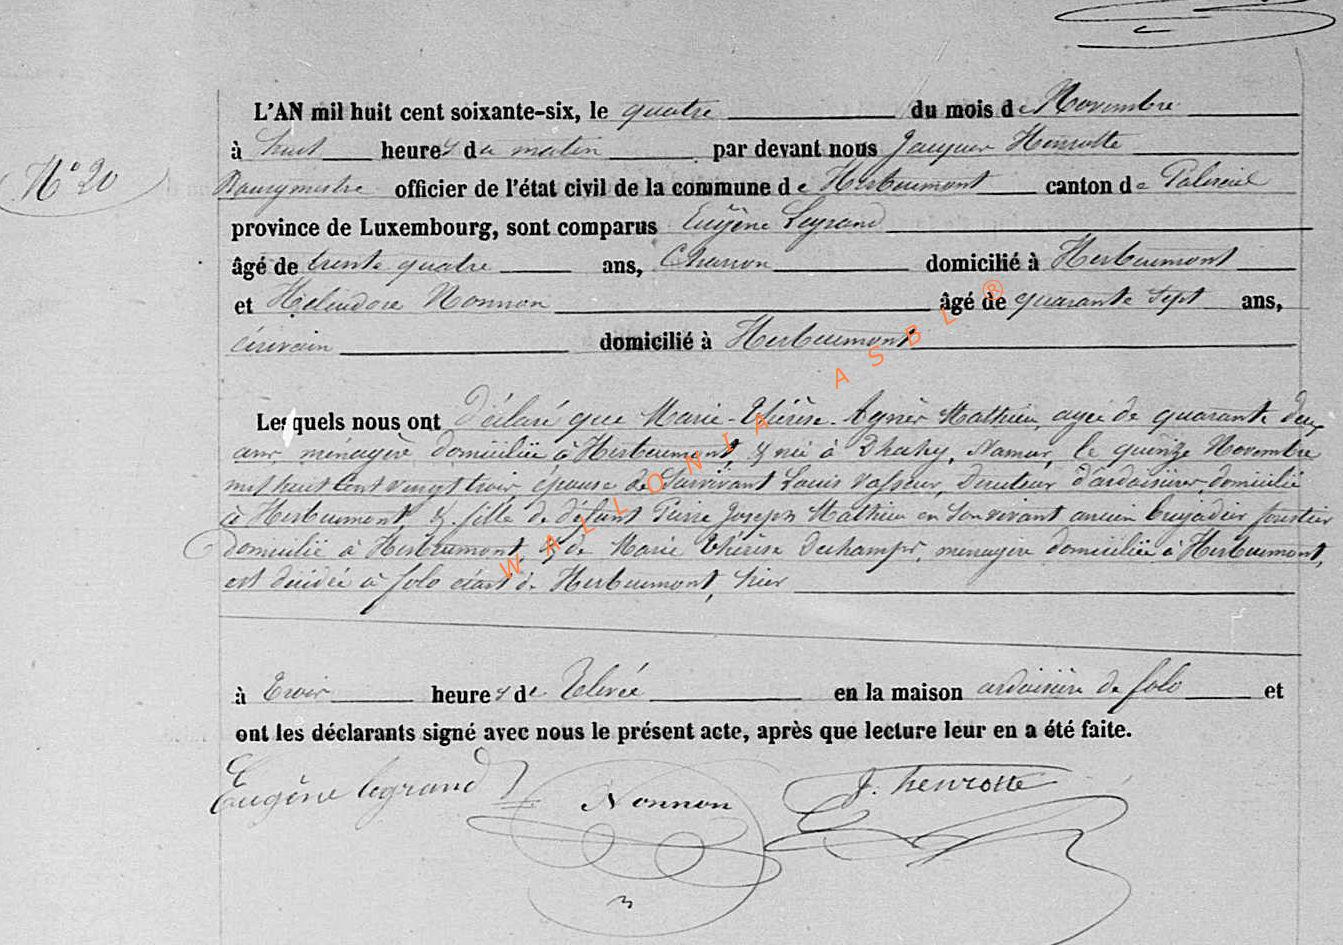 L'AN mil huit cent soixante-six, le quatre du mois de Novembre
à huit heures du matin par devant nous Jacques Henrotte
N° 20
Bourgmestre officier de l'état civil de la commune de Herbeumont canton de Paliseul
province de Luxembourg, sont comparus Eugène Legrand
âgé de trente quatre ans, Charron domicilié à Herbeumont
et Heliodore Nonnon âgé de quarante sept ans,
écrivain domicilié à Herbeumont
Lesquels nous ont déclaré que Marie-Thérèse Agnès Mathieu agée de quarante deux
ans, ménagère domiciliée à Herbeumont, & née à Namur, le quinze Novembre
mil huit cent vingt trois, épouse de Survivant Louis Vasseur, Directeur d'ardoisières, domicilié
à Herbeumont, & fille de défunt Pierre Joseph Mathieu en son vivant ancien brigadier forestier
domicilié à Herbeumont & de Marie Thérèse Dechamps, menagère domiciliée à Herbeumont,
est décédée à folo Herbeumont, hier
à trois heures de Relevée en la maison ardoisière de folo et
ont les déclarants signé avec nous le présent acte, après que lecture leur en a été faite.
Eugène legrand Nonnon J. henrotte
WALLONIA ASBL ®